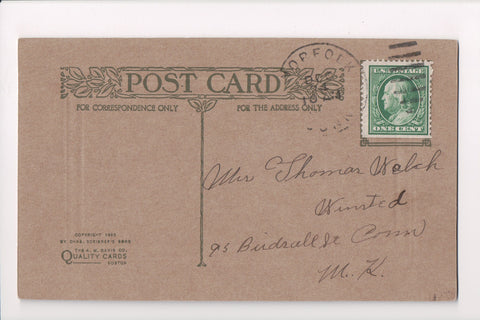 POST CARD
FOR CORRESPONDENCE ONLY
FOR THE ADDRESS ONLY
NORFOLK
CONN
U.S. POSTAGE
ONE CENT
Mrs Thomas Welch
Winsted
95 Birdsall St Conn
M. K.
COPYRIGHT
BY CHAS. SCRIBNER'S SONS
THE A. M. DAVIS CO.
QUALITY CARDS
BOSTON